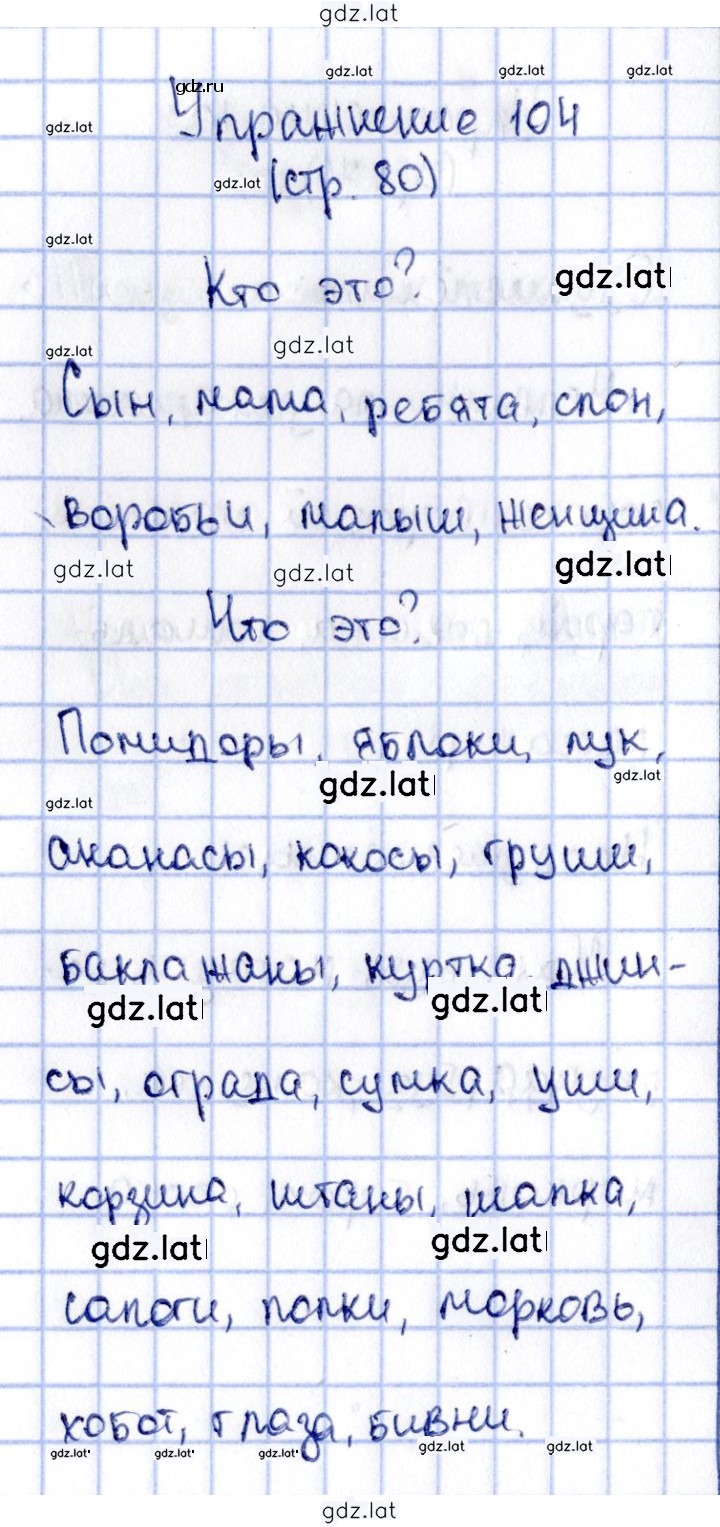 gdz.lat
gdz.lat gdz.lat gdz.lat
gdz.ru
gdz.lat
Упражнение 104
gdz.lat
(стр. 80)
gdz.lat
Кто это?
gdz.lat
gdz.lat
gdz.lat
Сын, мама, ребята, слон,
воробьи, малыш, женщина.
gdz.lat gdz.lat gdz.lat
Что это?
Помидоры, яблоки, лук,
gdz.lat gdz.lat gdz.lat
ананасы, кокосы, груши,
баклажаны, куртка, джин-
gdz.lat gdz.lat
сы, ограда, сумка, уши,
корзина, штаны, шапка,
gdz.lat gdz.lat
сапоги, полки, морковь,
хобот, глаза, бивни.
gdz.lat gdz.lat gdz.lat gdz.lat gdz.lat
gdz.lat